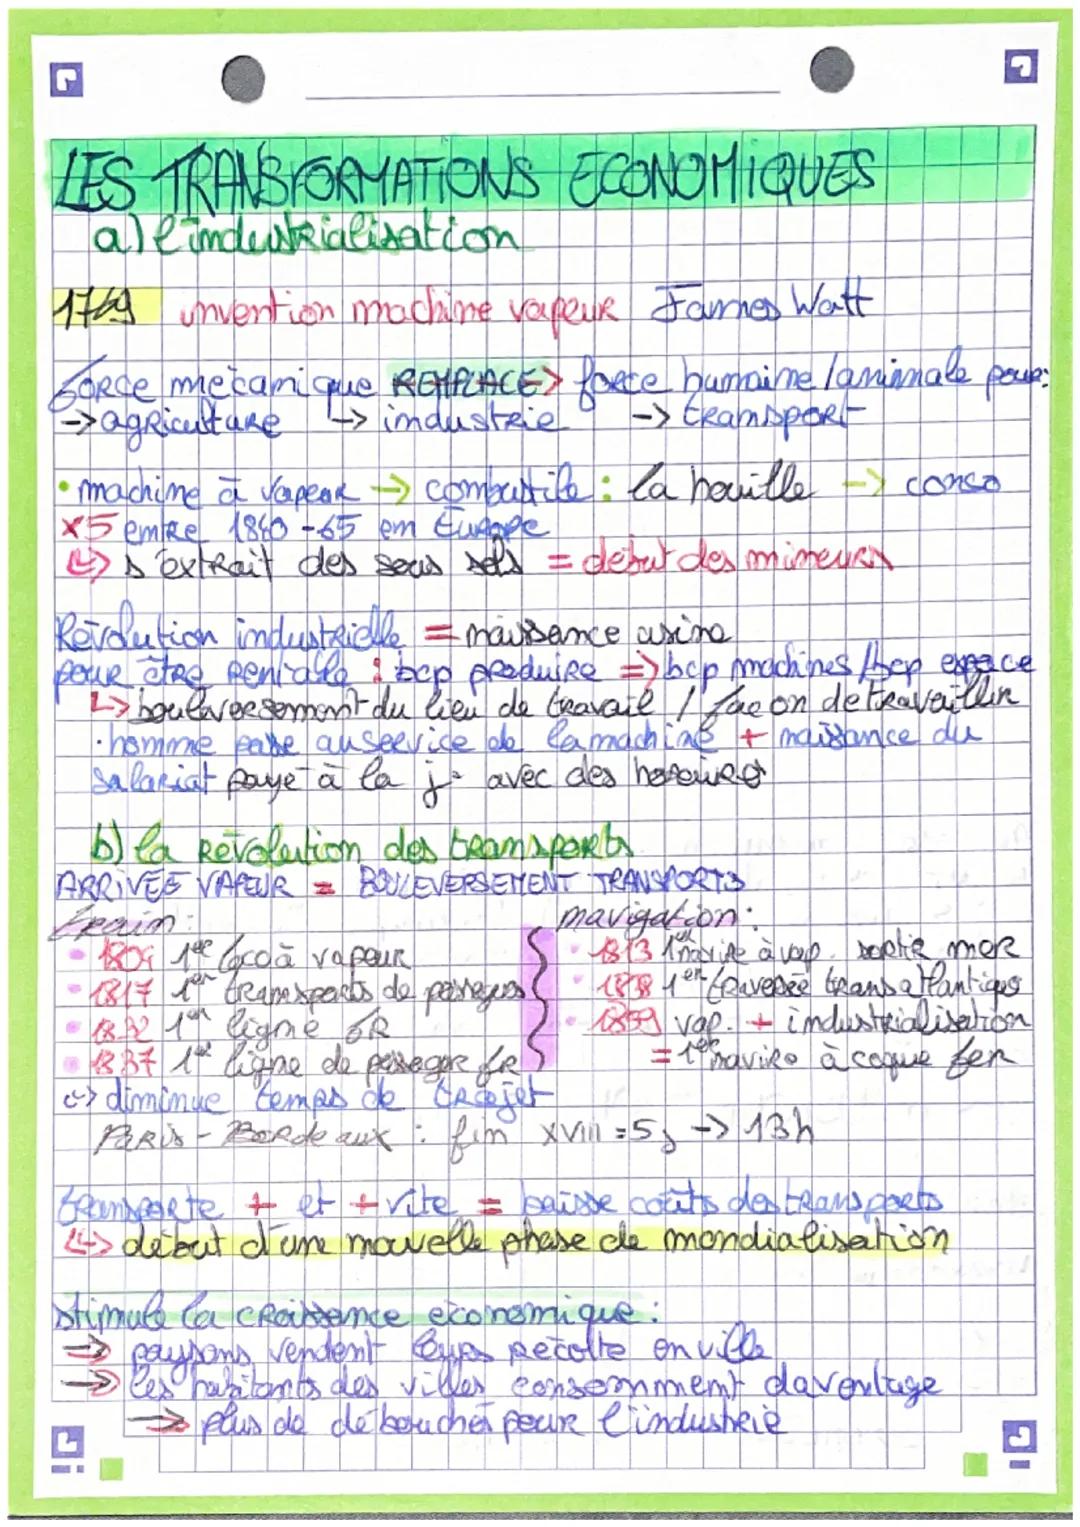 LES TRANSFORMATIONS ECONOMIQUES
a) l'industrialisation
1769 invention machine vapeur James Watt
Force mécanique REMPLACE → force humaine/animale pour:
→ agriculture ↳ industrie → transport
• machine à vapeur → combustile : la houille → conso
x5 entre 1840-65 em Europe
↳ s'extrait des sous sols = début des mineurs
Révolution industrielle = naissance usine
pour être rentable : bcp produire => bcp machines/bcp espace
↳ bouleversement du lieu de travail / façon de travailler
· homme passe au service de la machine + naissance du
salariat payé à la j. avec des horaires
b) la révolution des transports
ARRIVEE VAPEUR = BOULEVERSEMENT TRANSPORTS
train:
• 1804 1ère loco à vapeur
• 1817 1er transports de passagers
• 1832 1ère ligne FR
• 1837 1ère ligne de passager FR
navigation:
• 1813 1er navire à vap. sortie mer
• 1838 1er traversée transatlantique
• 1859 vap. + industrialisation
= 1er navire à coque fer
↳ diminue temps de trajet
Paris - Bordeaux : fin XVIII = 5j → 13h
transporte + et + vite = baisse coûts des transports
↳ début d'une nouvelle phase de mondialisation
stimule la croissance économique :
→ paysans vendent leurs récolte en ville
→ les habitants des villes consomment davantage
→ plus de débouchés pour l'industrie